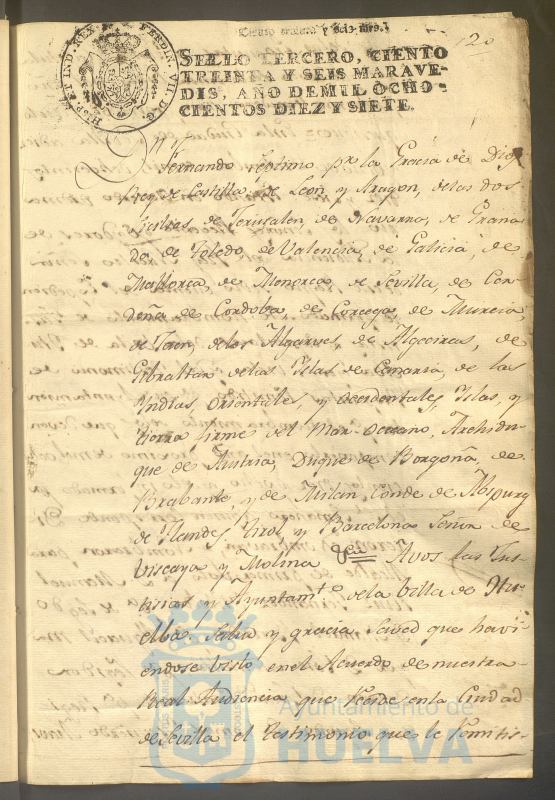 HISP. ET IND. REX FERDIN. VII. D. G.
Ciento treinta y seis mrs.
120
SELLO TERCERO, CIENTO
TREINTA Y SEIS MARAVE-
DIS, AÑO DE MIL OCHO-
CIENTOS DIEZ Y SIETE.
Dn
Fernando Septimo por la Gracia de Dios
Rey de Castilla, de Leon y Aragon, de las dos
Sicilias de Jerusalen, de Navarra, de Grana
da de Toledo de Valencia, de Galicia, de
Mallorca, de Menorca, de Sevilla, de Cer-
deña de Cordoba, de Corcega, de Murcia,
de Jaen, de los Algarves, de Algeciras, de
Gibraltar de las Yslas de Canaria, de las
Yndias, orientales, y occidentales, Yslas, y
tierra firme del Mar Occeano, Archidu-
que de Austria, Duque de Borgoña, de
Brabante y de Milan, Conde de Abspurg
de Flandes, Tirol, y Barcelona Señor de
Viscaya y Molina &ca Avos las Jus-
ticias y Ayuntamto de la billa de Hu-
elba. Salud y gracia, Saved que havi-
éndose bisto en el Acuerdo de nuestra
Real Audiencia que reside en la Ciudad
de Sevilla el testimonio que le remitis-
Ayuntamiento de
HUELVA